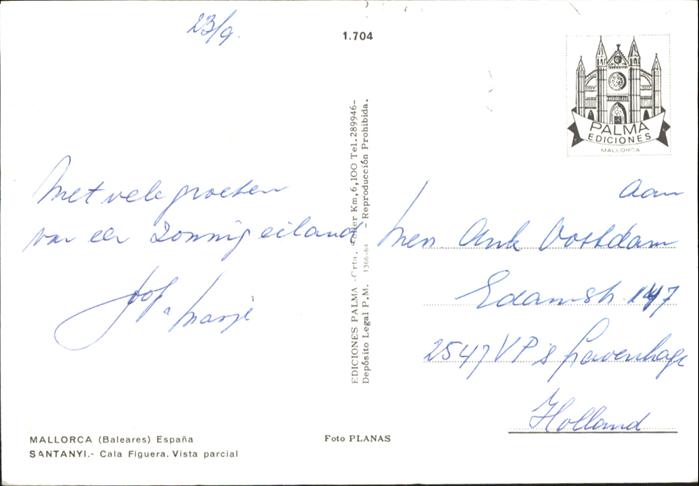 23/9.
1.704
PALMA
EDICIONES
MALLORCA
Met vele groeten
van een zonnig eiland
Joop
Marjé
EDICIONES PALMA -Crta. Sóller Km, 6,100 Tel. 289946-
Depósito Legal P.M. 1366-64 - Reproducción Prohibida.
Aan
Mevr. Ank Oostdam
Edamstr. 147
2547 VP 's Gravenhage
Holland
MALLORCA (Baleares) España
SANTANYI.- Cala Figuera. Vista parcial
Foto PLANAS